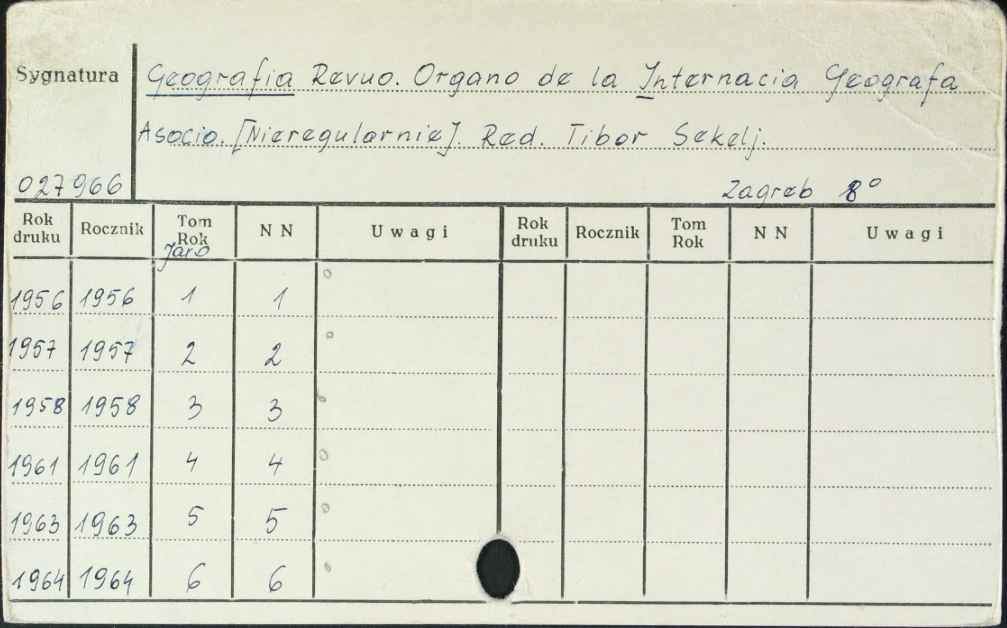 Sygnatura
Geografia Revuo. Organo de la Internacia Geografa
Asocio. [Nieregularnie]. Red. Tibor Sekelj.
027966
Zagreb 8°
Rok druku Rocznik Tom Rok NN Uwagi Rok druku Rocznik Tom Rok NN Uwagi
Jaro
1956 1956 1 1 o
1957 1957 2 2 o
1958 1958 3 3 o
1961 1961 4 4 o
1963 1963 5 5 o
1964 1964 6 6 o